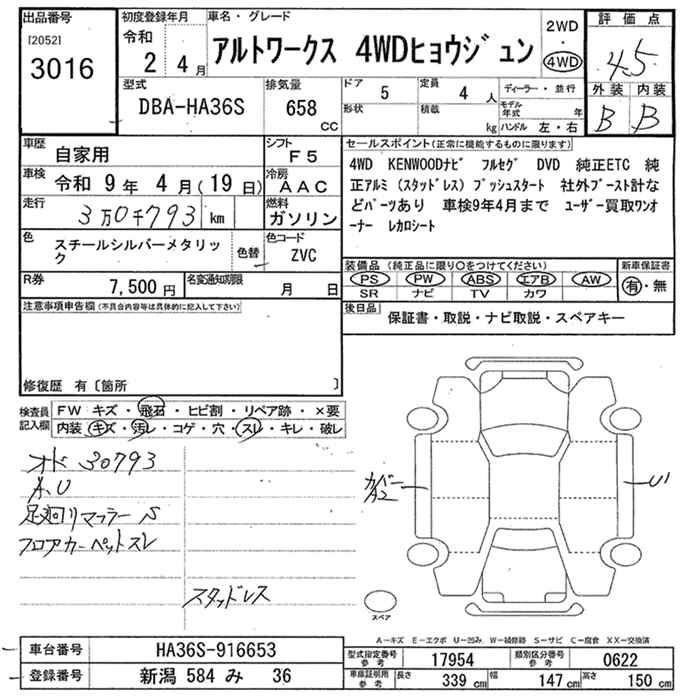 出品番号
[2052]
3016
初度登録年月
令和
2 年 4 月
車名・グレード
アルトワークス 4WDヒョウジュン
2WD
・
4WD
評価点
4.5
外装 内装
B B
型式
DBA-HA36S
排気量
658
cc
ドア
5
形状
定員
4 人
積載
kg
ディーラー・並行
モデル年式 年
ハンドル 左・右
車歴
自家用
シフト
F5
車検
令和 9 年 4 月(19 日)
冷房
AAC
走行
3万0千793 km
燃料
ガソリン
色
スチールシルバーメタリック
色替
色コード
ZVC
R券
7,500 円
名変通知期限
月 日
セールスポイント(正常に機能するものに限ります)
4WD KENWOODナビ フルセグ DVD 純正ETC 純
正アルミ(スタッドレス) プッシュスタート 社外ブースト計な
どパーツあり 車検9年4月まで ユーザー買取ワンオ
ーナー レカロシート
装備品(純正品に限り○をつけてください)
PS PW ABS エアB AW
SR ナビ TV カワ
新車保証書
有・無
後日品
保証書・取説・ナビ取説・スペアキー
注意事項申告欄(不具合内容等は具体的に記入して下さい)
修復歴 有〔箇所 〕
検査員
記入欄
FW キズ・飛石・ヒビ割・リペア跡・×要
内装 キズ・汚レ・コゲ・穴・スレ・キレ・破レ
オド 30793
A.U
足廻リマフラー S
フロアカーペットスレ
スタッドレス
カバー
A2
U1
スペア
A-キズ E-エクボ U-凹み W-補修跡 S-サビ C-腐食 XX-交換済
車台番号
HA36S-916653
登録番号
新潟 584 み 36
型式指定番号
参考
17954
類別区分番号
参考
0622
車庫証明用
参考
長さ
339 cm
幅
147 cm
高さ
150 cm